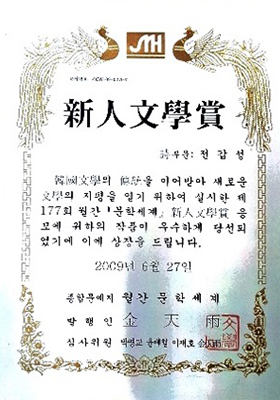 新人文學賞
詩부문: 전갑성
韓國文學의 傳統을 이어받아 새로운
文學의 지평을 열기 위하여 실시한 제
177회 월간 「문학세계」 新人文學賞 응
모에 귀하의 작품이 우수하게 당선되
었기에 이에 상장을 드립니다.
2009년 6월 27일
종합문예지 월간 문학세계
발행인 金天雨
심사위원 박명교 윤제철 이재호 金天雨
文學